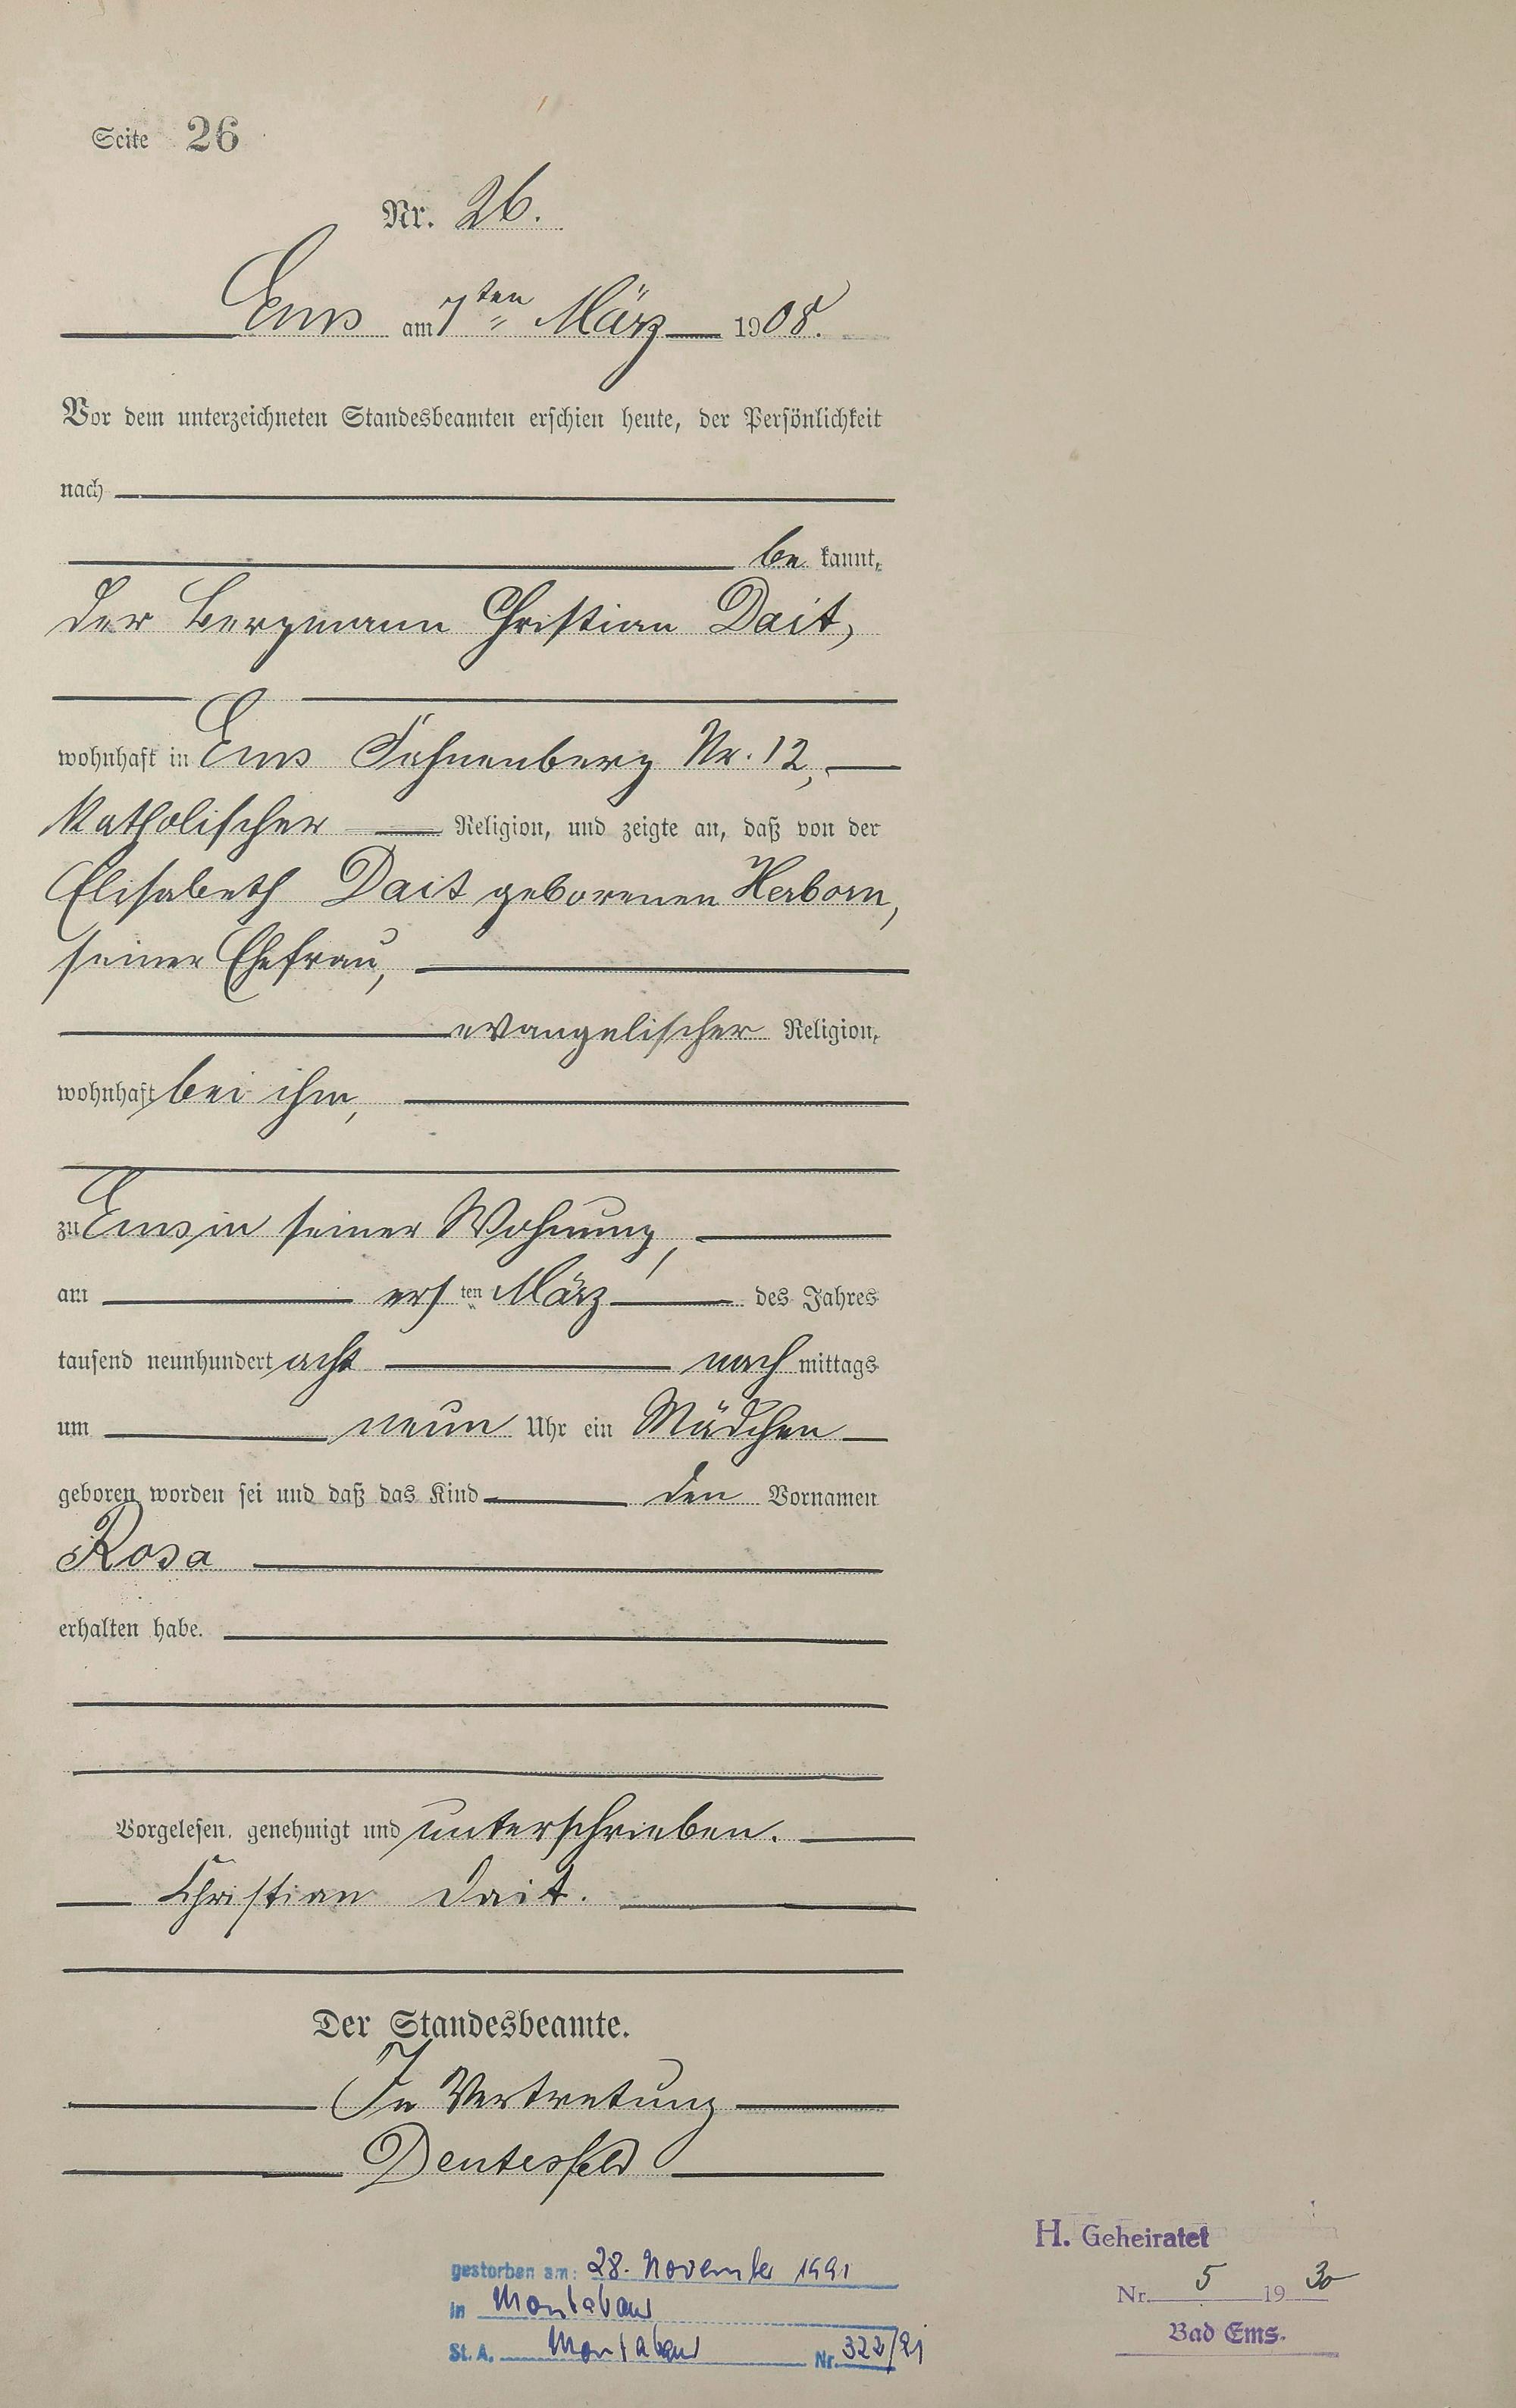 Seite 26
Nr. 26.
Ems am 7ten März 1908.
Vor dem unterzeichneten Standesbeamten erschien heute, der Persönlichkeit
nach
be kannt,
der Bergmann Christian Dait,
wohnhaft in Ems Fahnenberg Nr. 12,
katholischer Religion, und zeigte an, daß von der
Elisabeth Dait geborenen Herborn,
seiner Ehefrau,
evangelischer Religion,
wohnhaft bei ihm,
zu Ems in seiner Wohnung,
am ersten März des Jahres
tausend neunhundert acht nachmittags
um neun Uhr ein Mädchen
geboren worden sei und daß das Kind den Vornamen
Rosa
erhalten habe.
Vorgelesen, genehmigt und unterschrieben.
Christian Dait.
Der Standesbeamte.
In Vertretung
Deutesfeld
H. Geheiratet
Nr. 5 1930
Bad Ems.
gestorben am: 28. November 1991
in Montabaur
St. A. Montabaur Nr. 322/91